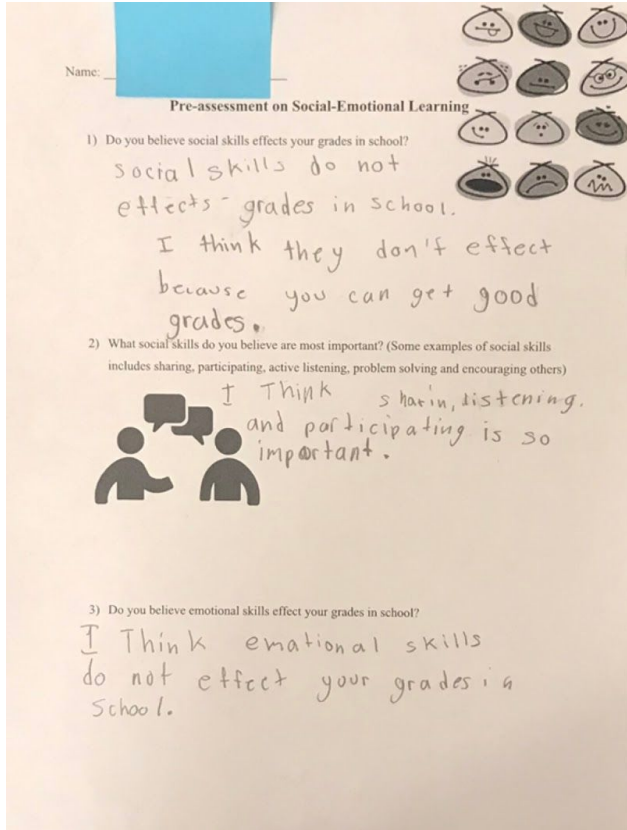 Name:
Pre-assessment on Social-Emotional Learning
1) Do you believe social skills effects your grades in school?
social skills do not
effects - grades in school.
I think they don't effect
because you can get good
grades.
2) What social skills do you believe are most important? (Some examples of social skills
includes sharing, participating, active listening, problem solving and encouraging others)
I Think sharin, listening.
and participating is so
important.
3) Do you believe emotional skills effect your grades in school?
I Think emational skills
do not effect your grades in
School.